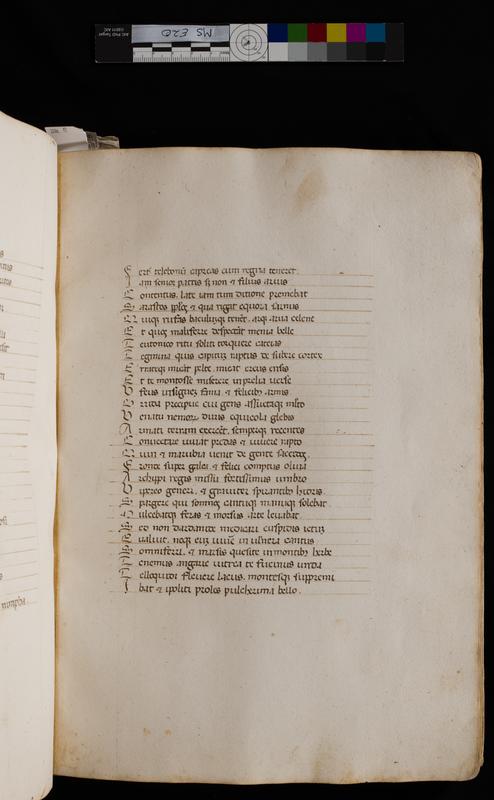 F ert telebonū capreas cum regna teneret.
I am senior patriis s; non et filius arvis
C ontentus. late iam tum ditione premebat
S arastes pplos et que rigat equora sarnus
Q uiqz rufras batulūqz tenēt. atqz arva celene
E t quos malifere despectāt menia belle
T eutonico ritu soliti torquere cateias
T egmina quis capitum raptus de subere cortex
E rateqz micāt pelte. micat ereus ensis
E t te montose misere in prelia nerse
V fens insignē fama et felicibz armis
H orrida precipue cui gens assuetaqz mlto
V enatu nemorū duris equicola glebis
A rmati terram exercēt. semperqz recentes
C onvectare iuvat predas et vivere rapto
Q uin et marubia venit de gente sacerdos
F ronde super galeā et felici comptus oliva
A rchippi regis missu fortissimus umbro
V ipereo generi. et graviter spirantibz hydris.
S pargere qui somnos cantuqz manuqz solebat
M ulcebatqz iras et morsus arte levabat.
S ed non dardanie medicari cuspidis ictum
E valuit. neqz eum iuvēe in vulnera cantus
S omniferi. et marsis quesite in montibz herbe
T e nemus angitie vitrea te fucinus unda
T e lliquidi flevere lacus. montesqz suppremi
I bat et ipoliti proles pulcherima bello.
MS E20
nimpha.